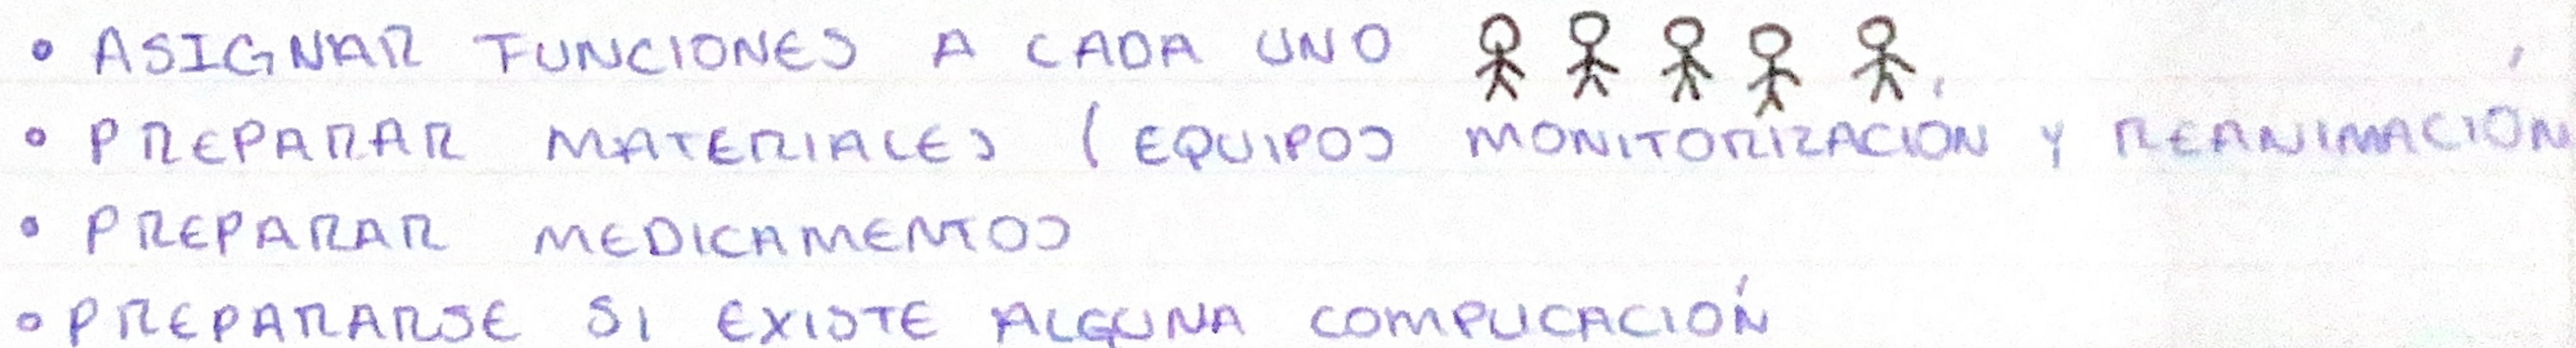 • ASIGNAR FUNCIONES A CADA UNO
• PREPARAR MATERIALES (EQUIPOS MONITORIZACIÓN Y REANIMACIÓN
• PREPARAR MEDICAMENTOS
• PREPARARSE SI EXISTE ALGUNA COMPLICACIÓN